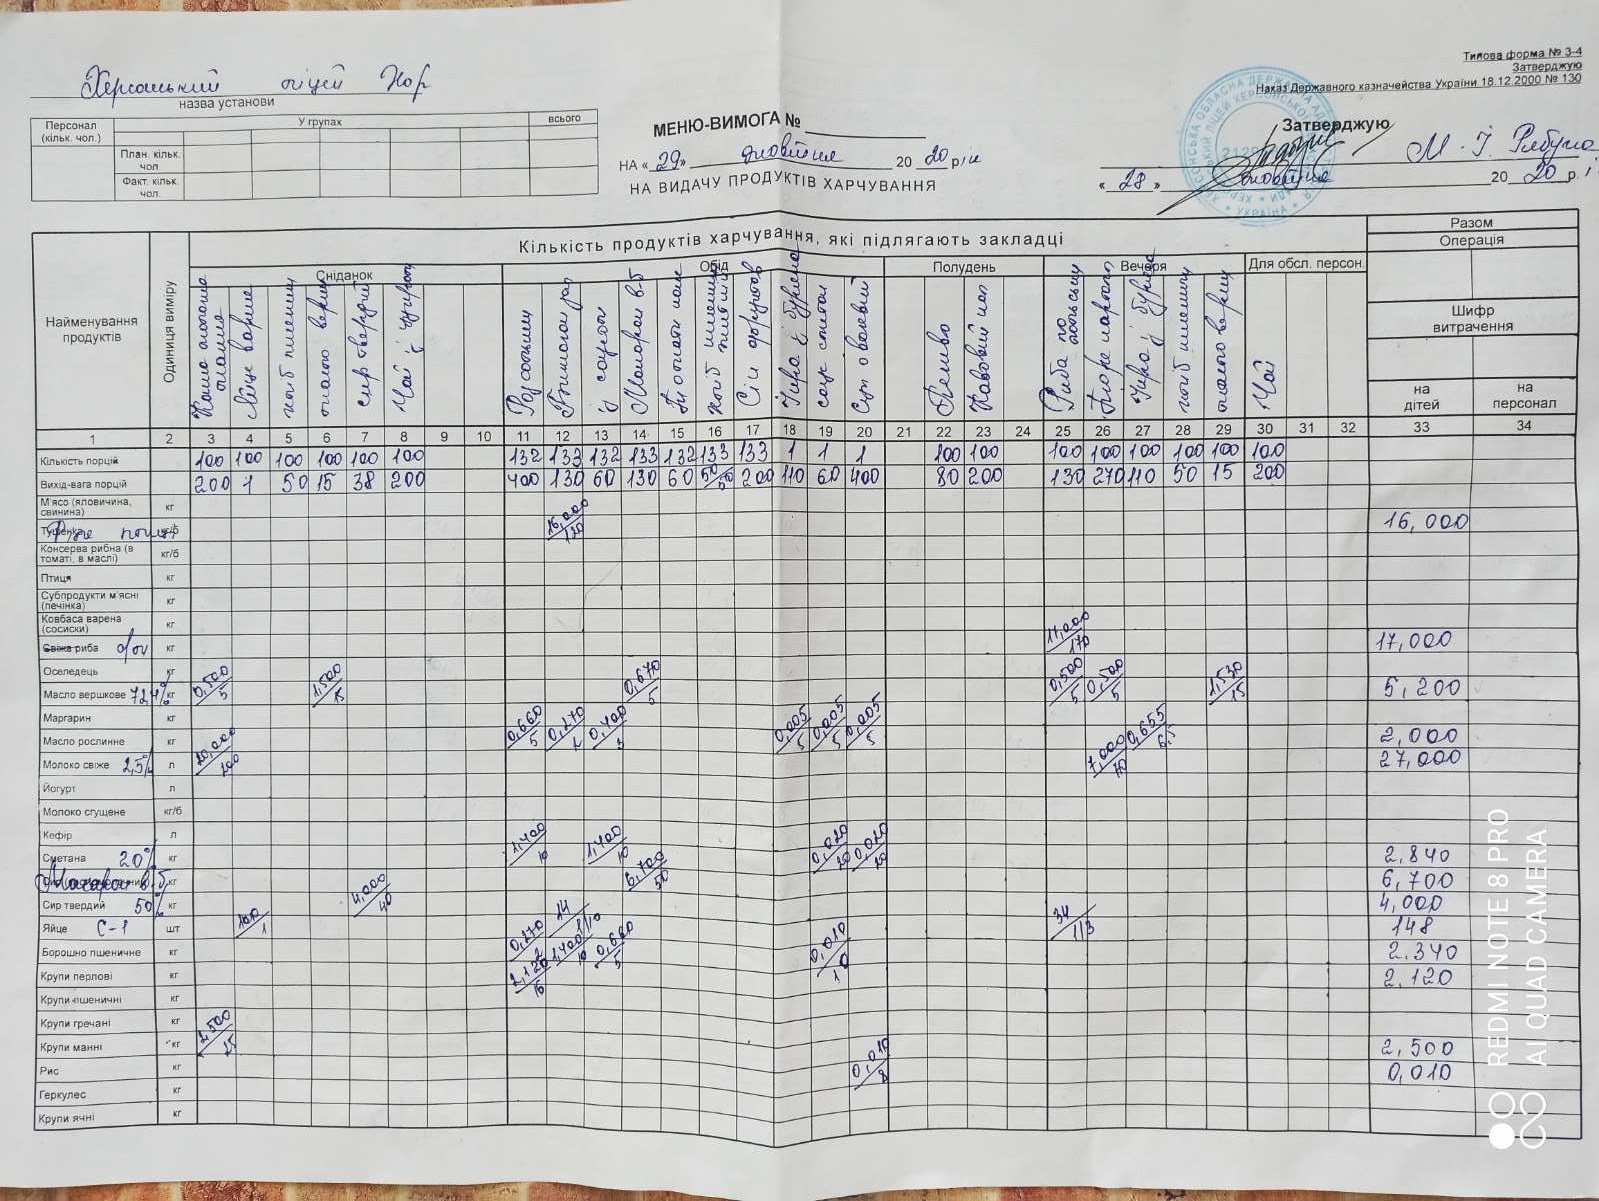 Типова форма № З-4
Затверджую
Наказ Державного казначейства України 18.12.2000 № 130
Херсонський ліцей
назва установи
Персонал (кільк. чол.)
У групах
всього
План. кільк. чол.
Факт. кільк. чол.
МЕНЮ-ВИМОГА №
НА « 29» жовтня 20 20 рік
НА ВИДАЧУ ПРОДУКТІВ ХАРЧУВАННЯ
Затверджую
М. І. Рябуха
« 28 » жовтня 20 20 р.
Найменування продуктів
Одиниця виміру
Кількість продуктів харчування, які підлягають закладці
Разом
Операція
Шифр витрачення
на дітей
на персонал
Сніданок
Обід
Полудень
Вечеря
Для обсл. персон.
Яйце варене
сир твердий
Чай з цукром
Риба по польськи
Чай
1 2 3 4 5 6 7 8 9 10 11 12 13 14 15 16 17 18 19 20 21 22 23 24 25 26 27 28 29 30 31 32 33 34
Кількість порцій 100 100 100 100 100 100 132 133 132 133 132 133 133 1 1 1 100 100 100 100 100 100 100 100
Вихід-вага порцій 200 1 50 15 38 200 400 130 60 130 60 200 110 60 400 80 200 130 270 110 50 15 200
М'ясо (яловичина, свинина) кг
16,000/120 16,000
Консерва рибна (в томаті, в маслі) кг/б
Птиця кг
Субпродукти м'ясні (печінка) кг
Ковбаса варена (сосиски) кг
Свіжа риба кг 17,000/170 17,000
Оселедець кг
Масло вершкове кг 0,500/5 1,500/15 0,670/5 0,500/5 0,500/5 1,530/15 5,200
Маргарин кг
Масло рослинне кг 0,660/5 0,270/2 0,400/3 0,005/5 0,005/5 0,005/5 0,655/6.5 2,000
Молоко свіже 2,5% л 20,000/200 7,000/70 27,000
Йогурт л
Молоко сгущене кг/б
Кефір л
Сметана 20% кг 1,400/10 1,400/10 0,020/20 0,020/20 2.840
Макарон в-б кг 6,700/50 6,700
Сир твердий 50% кг 4,000/40 4,000
Яйце С-1 шт 100/1 14 1/10 34 1/3 148
Борошно пшеничне кг 0,270/2 1,400/10 0,660/5 0,010/10 2.340
Крупи перлові кг 2,120/16 2.120
Крупи пшеничні кг
Крупи гречані кг
Крупи манні кг 2,500/25 2,500
Рис кг 0,010/8 0,010
Геркулес кг
Крупи ячні кг
REDMI NOTE 8 PRO
AI QUAD CAMERA